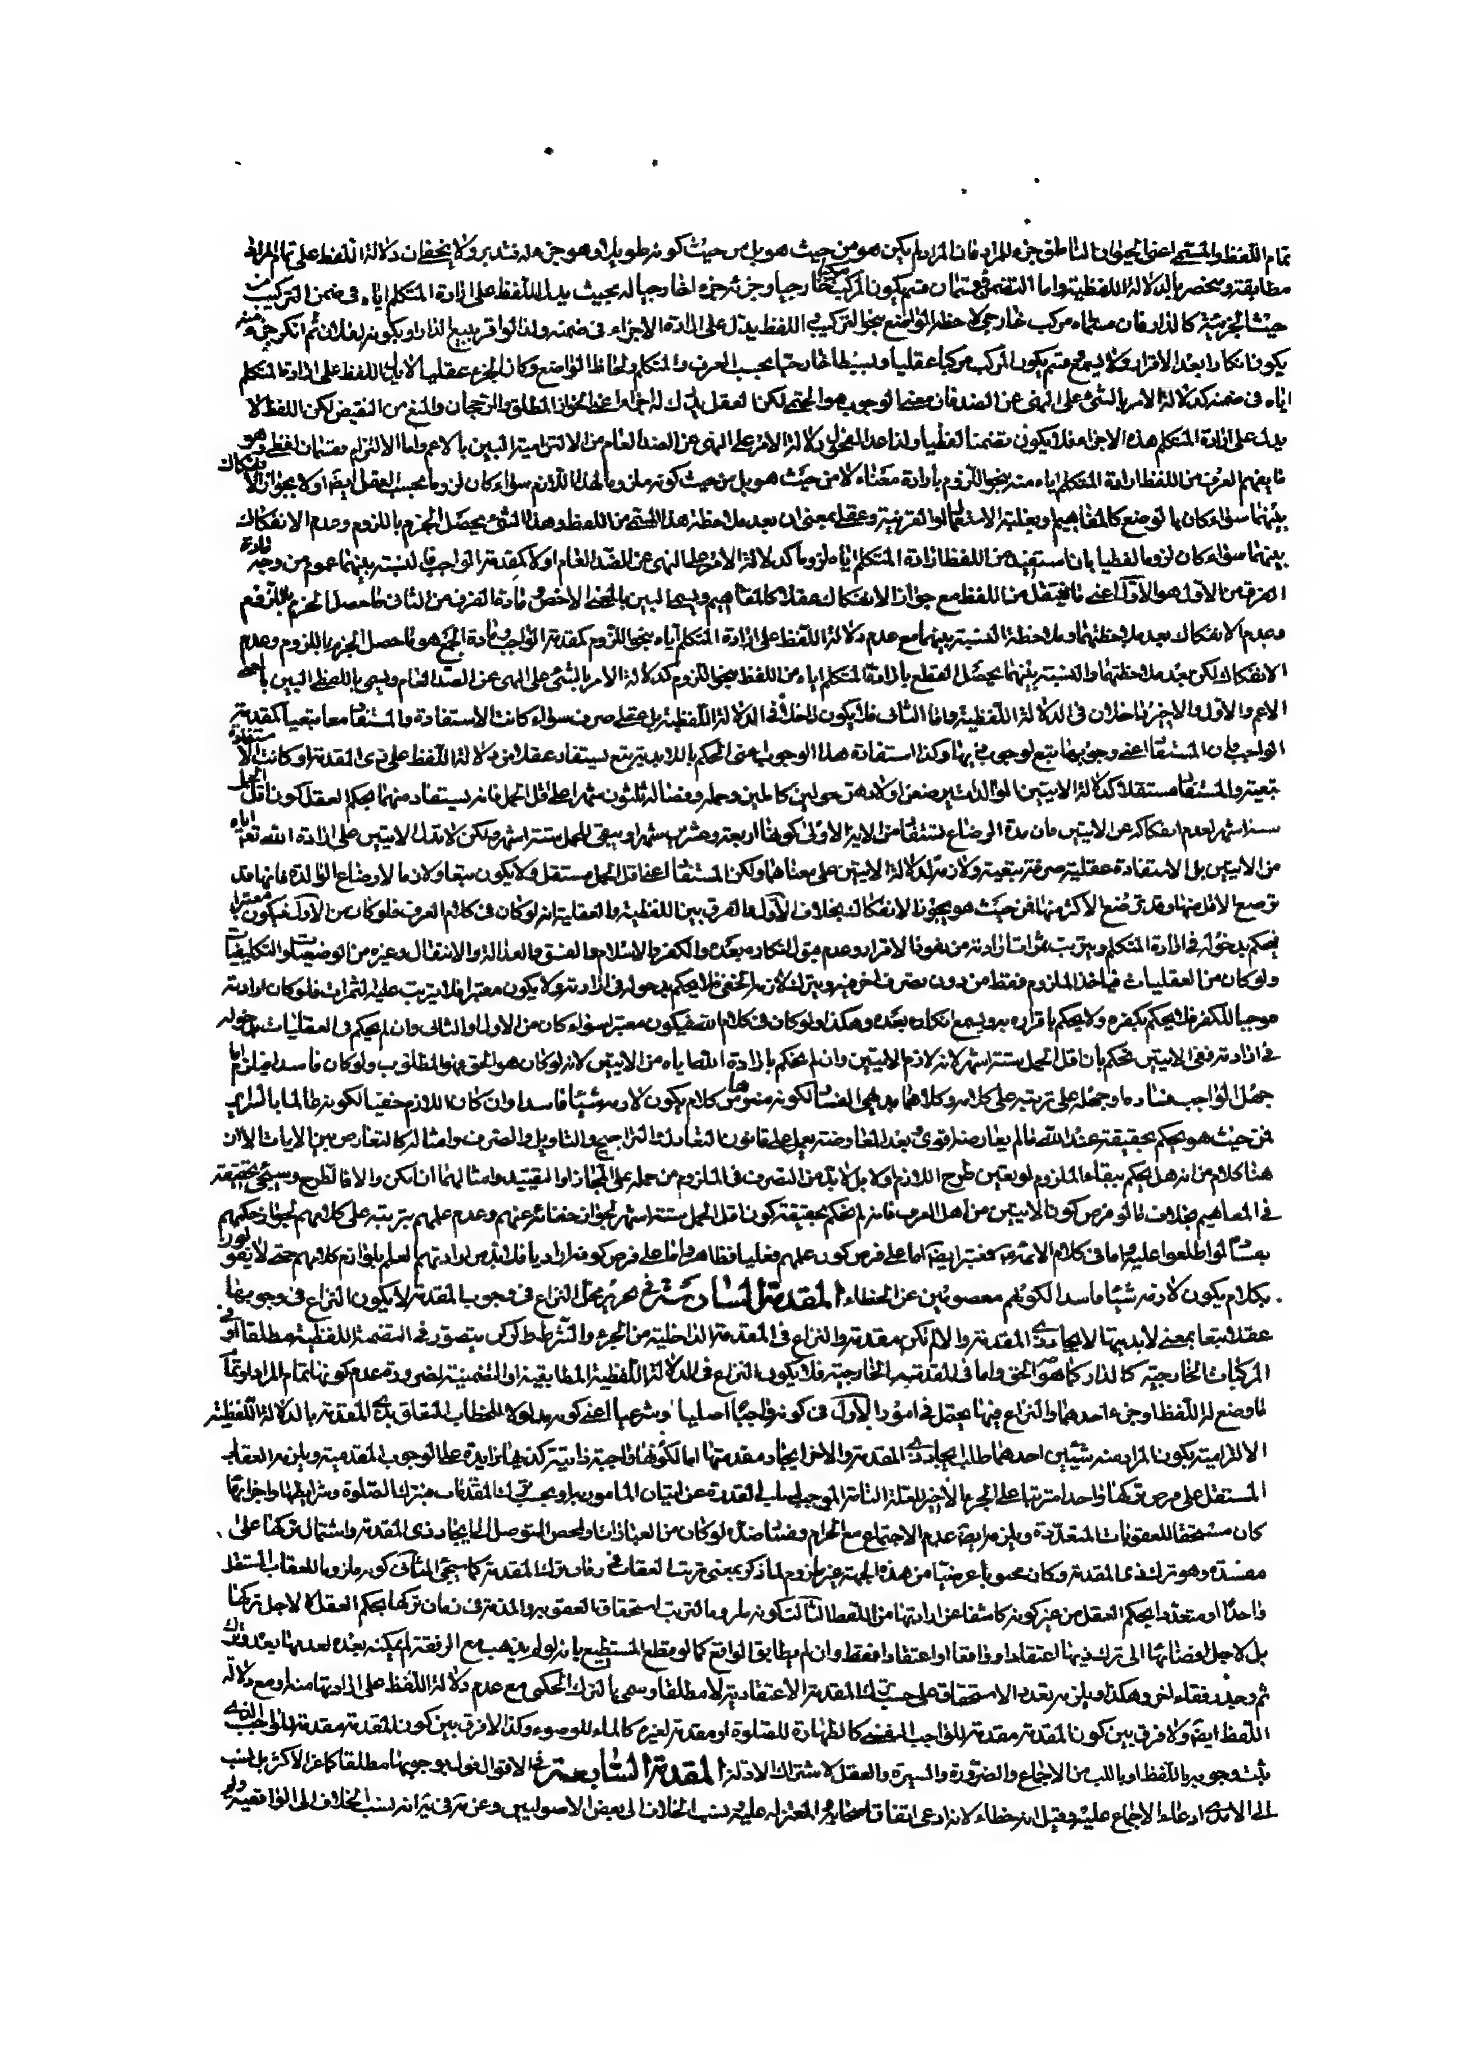 تمام اللفظ والمسمى اعنى الحيوان الناطق جزء المراد فان المراد لم يكن هو من حيث هو بل من حيث كونه طويلا وهو جزء له فتدبر ولا يخفى ان دلالة اللفظ على تمام المراد
مطابقة وينحصر بالدلالة اللفظية واما التضمن فقسمان قسم يكون المركب مركبا خارجيا وجزئه جزء خارجيا له بحيث يدل اللفظ على ارادة المتكلم اياه فى ضمن التركيب من
حيث الجزئية كالدار فان مسماه مركب خارجى لاحظه الواضع بنحو التركيب اللفظ يدل على ارادة الاجزاء فى ضمنه ولذا لو اقر ببيع الدار او بكونه لفلان ثم انكر جزء منه
يكون انكارا بعد الاقرار ولا يسمع وقسم يكون المركب مركبا عقليا وبسيطا خارجيا بحسب العرف والمتكلم ولحاظ الواضع وكان الجزء عقليا لا يدل اللفظ على ارادة المتكلم
اياه فى ضمنه كدلالة الامر بالشئ على النهى عن الضد فان معنى الوجوب هو الحتم لكن العقل يدرك له اجزاء اعنى الجواز المطلق والرجحان والمنع من النقيض لكن اللفظ لا
يدل على ارادة المتكلم هذه الاجزاء فلا يكون تضمنا لفظيا ولذا عد الفحول دلالة الامر على النهى عن الضد العام من الالتزامية البين بالاعم واما الالتزام فقسمان لفظى وهو
ما يفهم العرف من اللفظ ارادة المتكلم اياه منه بنحو اللزوم بارادة معناه لا من حيث هو بل من حيث كونه ملزوما لهذا اللازم سواء كان لزوما بحسب العقل ايضا او لا يجوز الانفكاك
بينهما سواء كان بالوضع كالمفاهيم او بغلبة الاستعمال والقرينة وعقلى بمعنى ان بعد ملاحظة هذا المسمى من اللفظ وهذا الشئ يحصل الجزم باللزوم وعدم الانفكاك
بينهما سواء كان لزوما لفظيا بان استفيد من اللفظ ارادة المتكلم اياه لزوما كدلالة الامر على النهى عن الضد العام او لا كمقدمة الواجب فالنسبة بينهما عموم من وجه فمادة
الافتراق من الاول هو الاول اعنى ما ينتقل من اللفظ مع جواز الانفكاك عقلا كالمفاهيم ويسمى البين بالمعنى الاخص ومادة الفرق من الثانى ما حصل الجزم باللزوم
وعدم الانفكاك بعد ملاحظتهما وملاحظة النسبة بينهما مع عدم دلالة اللفظ على ارادة المتكلم اياه بنحو اللزوم كمقدمة الواجب ومادة الجمع هو ما حصل الجزم باللزوم وعدم
الانفكاك لكن بعد ملاحظتهما والنسبة بينهما يحصل القطع بارادة المتكلم اياه من اللفظ بنحو اللزوم كدلالة الامر بالشئ على النهى عن الضد العام ويسمى باللفظى البين بالمعنى
الاعم والاول والاخير داخلان فى الدلالة اللفظية واما الثانى فلا يكون داخلا فى الدلالة اللفظية بل عقلى صرف سواء كانت الاستفادة والمستفاد معا تبعيا كمقدمة
الواجب فان المستفاد اعنى وجوبها تبع لوجوب ذيها وكذا استفادة هذا الوجوب اعنى الحكم باللابدية تبع يستفاد عقلا من دلالة اللفظ على ذى المقدمة او كانت الاستفادة
تبعية والمستفاد مستقلا كدلالة الايتين والوالدات يرضعن اولادهن حولين كاملين وحمله وفصاله ثلثون شهرا على اقل الحمل فانه يستفاد منهما بحكم العقل كون اقل الحمل
ستة اشهر لعدم انفكاكه عن الايتين فان مدة الرضاع مستفاد من الاية الاولى كونها اربعة وعشرين شهرا ويبقى للحمل ستة اشهر ولكن لا تدل الايتين على ارادة الله تعالى اياه
من الايتين بل الاستفادة عقلية صرفة تبعية ولازمة لدلالة الايتين على معناهما ولكن المستفاد اعنى اقل الحمل مستقل ولا يكون تبعا ولازما لارضاع الوالدة فانها قد
ترضع الاقل منها وقد ترضع الاكثر منها فمن حيث هو يجوز الانفكاك بخلاف الاول والفرق بين اللفظية والعقلية انه لو كان فى كلام العرف فلو كان من الاول فيكون معتبرا
فيحكم بدخوله فى ارادة المتكلم ويترتب ثمرات ارادته من نفوذ الاقرار وعدم قبول انكاره بعده والكفر والاسلام والفسق والعدالة والانتقال وغيره من الوضعيات والتكليفيات
ولو كان من العقليات فياخذ الملزوم فقط من دون تصرف اخر فيه ويترك لازمه الخفى فلا يحكم بدخوله فى ارادته ولا يكون معتبرا فلا يترتب عليه الثمرات فلو كان ارادته
موجبا للكفر فلا يحكم بكفره ولا يحكم باقراره به ويسمع انكاره بعده وهكذا ولو كان فى كلام الله فيكون معتبرا سواء كان من الاول او الثانى وان لم يحكم فى العقليات بدخوله
فى ارادته ففى الايتين نحكم بان اقل الحمل ستة اشهر لانه لازم الايتين وان لم نحكم بارادة الله اياه من الايتين لانه لو كان هو الحق فهو المطلوب ولو كان فاسدا فيلزم اما
جهل الواجب بفساده او جهله على ترتبه على كلامه وكلاهما بديهى الفساد لكونه منزها من كلام يكون لازمه شيئا فاسدا وان كان اللازم خفيا لكونه عالما بالسراير
فمن حيث هو يحكم بحقيقته عند الله ما لم يعارضه اقوى بعد المعارضة يعمل على قانون التعادل والتراجيح والتاويل والتصرف وامثاله كالتعارض بين الايات الا ان
هنا كلام من انه هل يحكم ببقاء الملزوم لو تعين طرح اللازم اولا بل لا بد من التصرف فى الملزوم من حمله على المجاز او التقييد وامثالهما ان امكن والا فالطرح وسيجئ تحقيقه
فى المفاهيم بخلاف ما لو فرض كون الايتين من اهل العرف فانه لم نحكم بحقيقة كون اقل الحمل ستة اشهر لجواز خفائه عنهم وعدم علمهم بترتبه على كلامهم لجواز حكمهم
بفساده لو اطلعوا عليه واما فى كلام الائمة فمعتبر ايضا اما على فرض كون علمهم فعليا فظاهر واما على فرض كونه اراديا فلا بد من ارادتهم العلم بلوازم كلامهم حتى لا يقولوا
بكلام يكون لازمه شيئا فاسدا لكونهم معصومين عن الخطاء المقدمة السادسة فى تحرير محل النزاع فى وجوب المقدمة لا يكون النزاع فى وجوبها
عقلا تبعا بمعنى لابديتها لايجاد ذى المقدمة والا لم تكن مقدمة والنزاع فى المقدمة الداخلية من الجزء والشرط لو كان يتصور فى التضمنية اللفظية مطلقا او فى
المركبات الخارجية كالدار كما هو الحق واما فى المقدمة الخارجية فلا يكون النزاع فى الدلالة اللفظية المطابقية او التضمنية لضرورة عدم كونها تمام المراد او تمام
ما وضع له اللفظ او جزء احدهما والنزاع فيها يحتمل فى امور الاول فى كونه واجبا اصليا وشرعيا اعنى كونه مدلولا للخطاب المتعلق بذى المقدمة بالدلالة اللفظية
الالتزامية بكون المراد منه شيئين احدهما طلب ايجاد ذى المقدمة والاخر ايجاد مقدمتها اما لكونها واجبة ذاتية كذيها زايدة على الوجوب المقدمية ويلزمه العقاب
المستقل على فرض تركها واحدا مترتبا على الجزء الاخير للعلة التامة الموجب لسلب القدرة عن اتيان المامور به او بحسب ترك المقدمات فبترك الصلوة وشرايطها واجزائها
كان مستحقا للعقوبات المتعددة ويلزمه ايضا عدم الاجتماع مع الحرام وفساد ضده لو كان من العبادات او لمحض التوصل الى ايجاد ذى المقدمة واشتمال تركها على
مفسدة وهو ترك ذى المقدمة وكان محبوبا عرضيا من هذه الجهة غير ملزوم لما ذكر بمعنى ترتب العقاب فى زمان ترك المقدمة كما سيجئ الثانى كونه ملزوما للعقاب المستقل
واحدا او متعددا بحكم العقل من غير كونه كاشفا عن ارادتها من اللفظ الثالث كونه ملزوما لترتب استحقاق العقوبة والمذمة فى زمان تركها بحكم العقل لا لاجل تركها
بل لاجل افضائها الى ترك ذيها اعتقادا وواقعا او اعتقادا فقط وان لم يطابق الواقع كما لو قطع المستطيع بانه لو لم يذهب مع الرفقة لم يمكنه بعده لعدمها بعده وترك
ثم وجد رفقاء اخر وهكذا ويلزمه تعدد الاستحقاق على حسب ترك المقدمة الاعتقادية لا مطلقا وسمى بالترك الحكمى مع عدم دلالة اللفظ على ارادتها منه او مع دلالة
اللفظ ايضا ولا فرق بين كون المقدمة مقدمة للواجب النفسى كالطهارة للصلوة او مقدمة لغيره كالماء للوضوء وكذا لا فرق بين كون المقدمة مقدمة للواجب الذى
ثبت وجوبه باللفظ او باللب من الاجماع والضرورة والسيرة والعقل لاشتراك الادلة المقدمة السابعة فى الاقوال القول بوجوبها مطلقا كما عن الاكثر بل نسب
الى الامدى ادعاء الاجماع عليه وقيل انه خطاء لانه ادعى اتفاق اصحابه والمعتزلة عليه ونسب الخلاف الى بعض الاصوليين وعن نسب الخلاف الى الواقفية